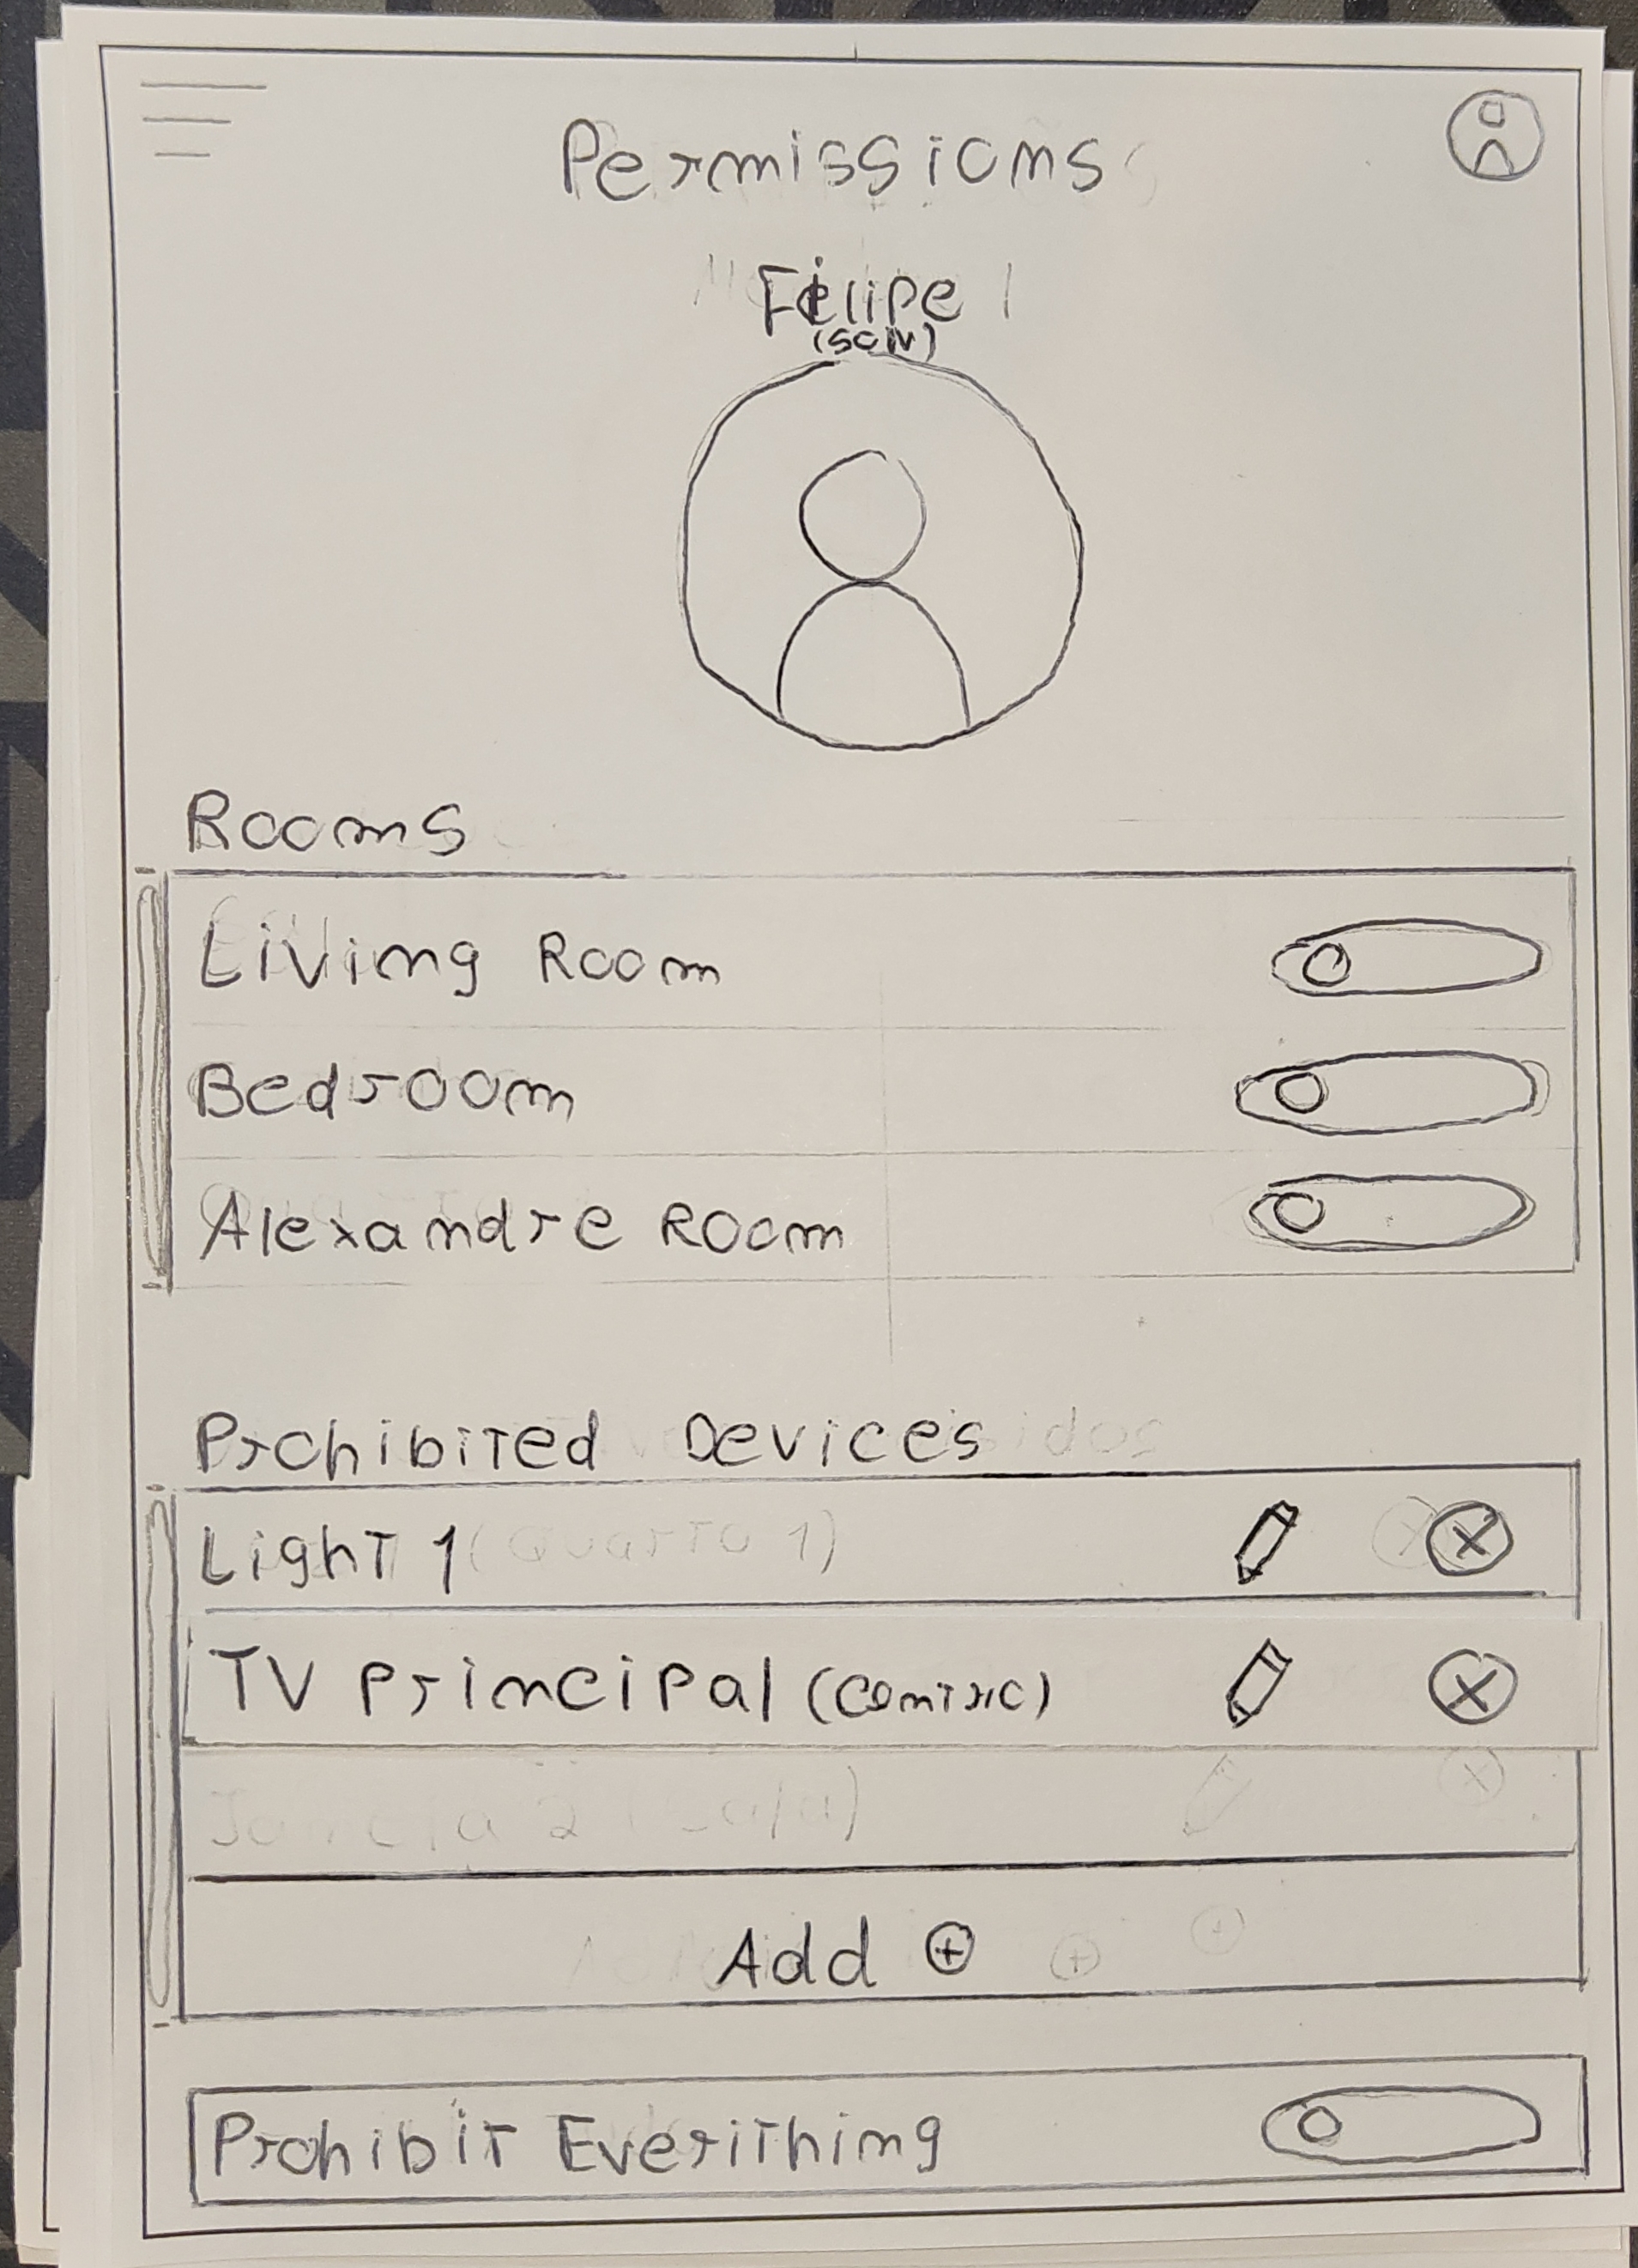 Permissions
Felipe
(son)
Rooms
Living Room
Bedroom
Alexandre Room
Prohibited Devices
Light 1 (Quarto 1)
TV Principal (
Janela 2 (Sala)
Add
Prohibit Everithing